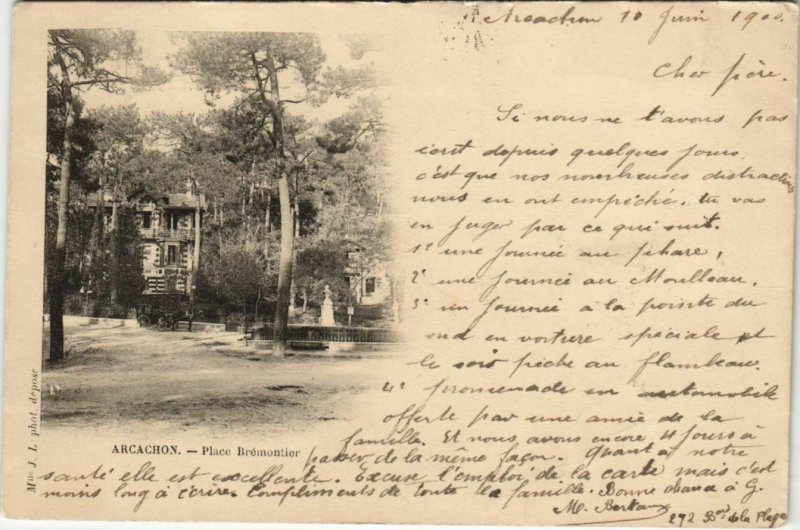 Arcachon 10 Juin 1900.
Cher frère.
Si nous ne t'avons pas
écrit depuis quelques jours,
c'est que nos nombreuses distractions
nous en ont empêchés. tu vas
en juger par ce qui suit.
1° une journée au phare,
2° une journée au Moulleau,
3° un journée à la pointe du
sud en voiture spéciale et
le soir pêche au flambeau.
4° promenade en automobile
offerte par une amie de la
famille. Et nous avons encore 4 jours à
passer de la même façon. Quant à notre
santé elle est excellente. Excuse l'emploi de la carte mais c'est
moins long à écrire. Compliments de toute la famille. Bonne chance à G.
M.
272 Bd de la Plage
ARCACHON. — Place Brémontier
Mme J. L. phot. dépose